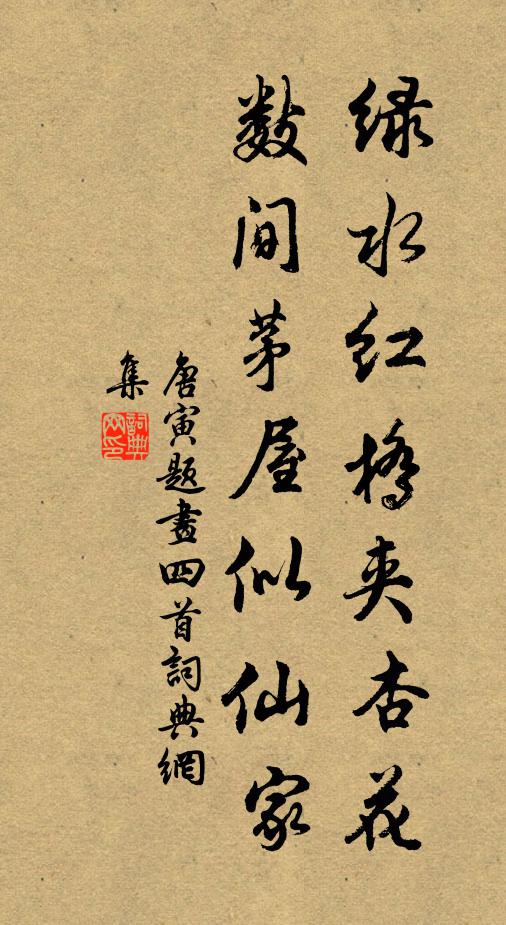 绿水红桥夹杏花
数间茅屋似仙家
唐寅题畫四首詞典網
集
詞典
网印